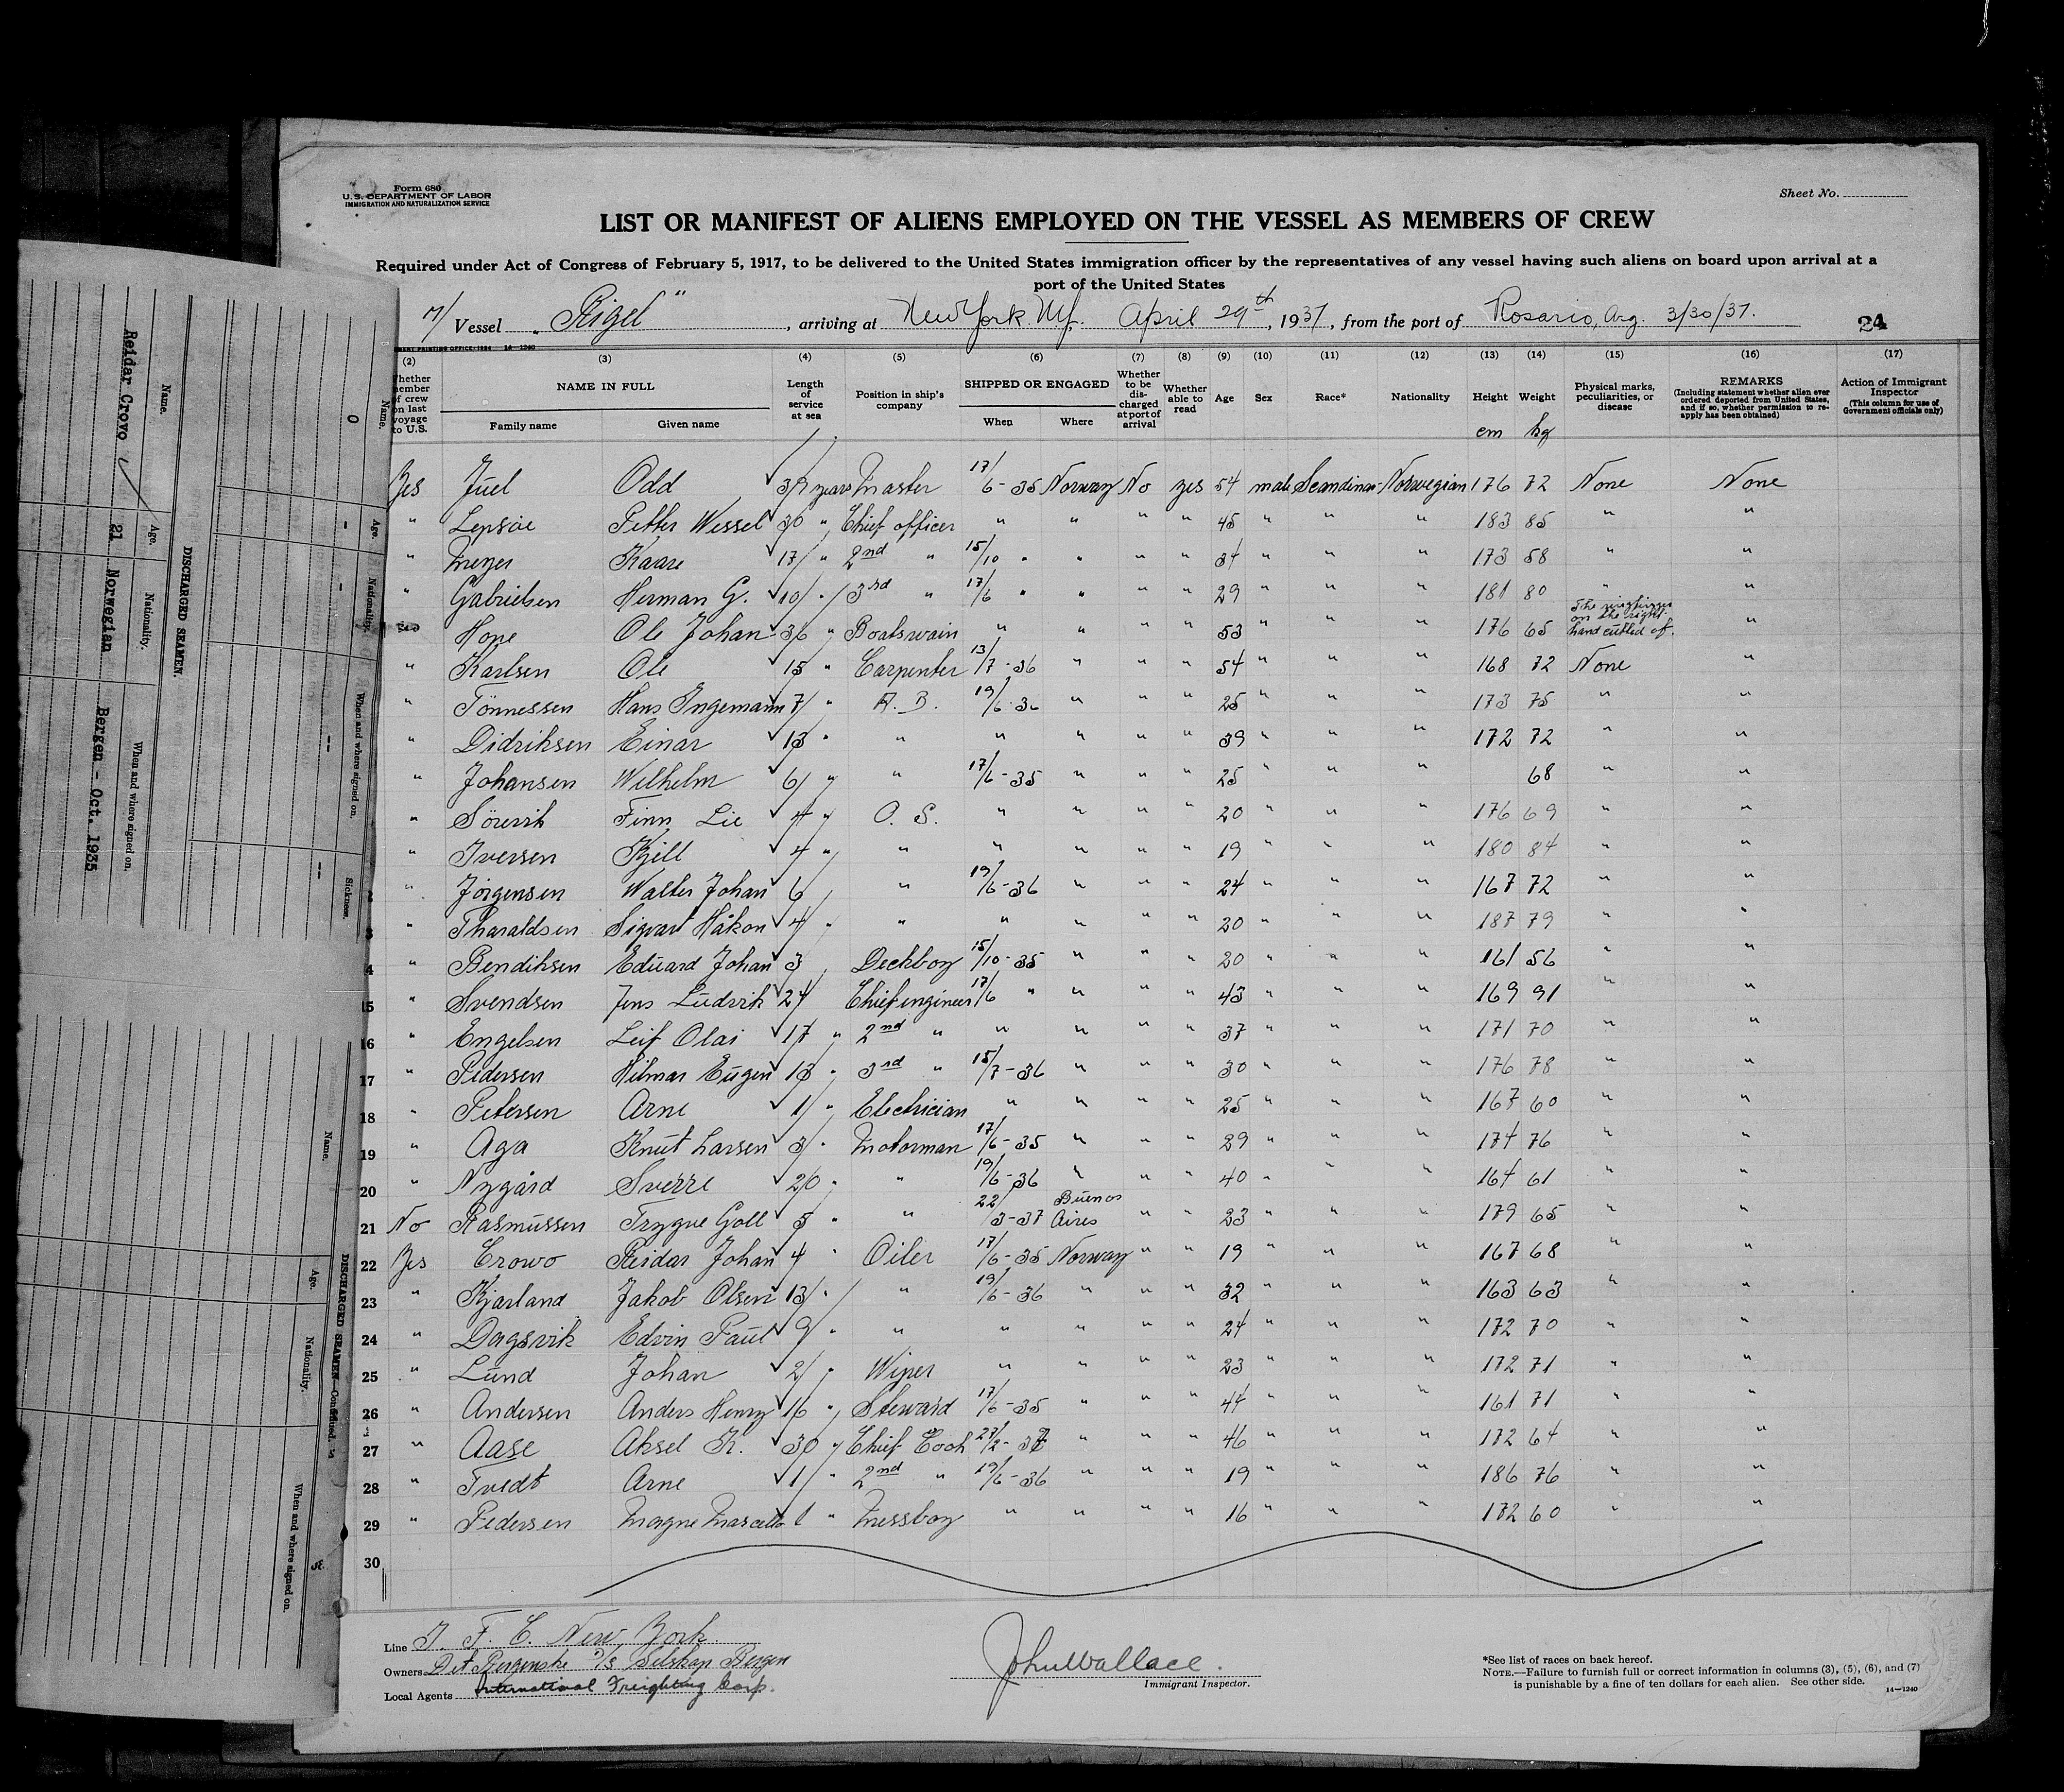 Form 680
U. S. DEPARTMENT OF LABOR
IMMIGRATION AND NATURALIZATION SERVICE
Sheet No.
LIST OR MANIFEST OF ALIENS EMPLOYED ON THE VESSEL AS MEMBERS OF CREW
Required under Act of Congress of February 5, 1917, to be delivered to the United States immigration officer by the representatives of any vessel having such aliens on board upon arrival at a
port of the United States
M/ Vessel "Rigel", arriving at New York. April 29th, 1937, from the port of Rosario, Arg. 3/30/37. 24
(2) (3) (4) (5) (6) (7) (8) (9) (10) (11) (12) (13) (14) (15) (16) (17)
Whether member of crew on last voyage to U.S.
NAME IN FULL
Family name Given name
Length of service at sea
Position in ship's company
SHIPPED OR ENGAGED
When Where
Whether to be discharged at port of arrival
Whether able to read
Age
Sex
Race*
Nationality
Height cm
Weight kg
Physical marks, peculiarities, or disease
REMARKS
(Including statement whether alien ever ordered deported from United States, and if so, whether permission to reapply has been obtained)
Action of Immigrant Inspector
(This column for use of Government officials only)
Yes Juel Odd 37 years Master 17/6-35 Norway No yes 54 male Scandinav Norwegian 176 72 None None
" Lepsöe Petter Wessel 30 " Chief officer " " " " 45 " " " 183 85 " "
" Meyer Kaare 17 " 2nd " 15/10 " " " " 34 " " " 173 58 " "
" Gabrielsen Herman G. 10 " 3rd " 17/6 " " " " 29 " " " 181 80 " "
Yes Hope Ole Johan 36 " Boatswain " " " " 53 " " " 176 65 The ringfinger on the right hand cutted of. "
" Karlsen Ole 15 " Carpenter 13/7-36 " " " 54 " " " 168 72 None "
" Tönnessen Hans Ingemann 7 " A. B. 19/6-36 " " " 25 " " " 173 75 " "
" Didriksen Einar 13 " " " " " " 39 " " " 172 72 " "
" Johansen Wilhelm 6 " " 17/6-35 " " " 25 " " " 68 " "
" Sörvik Finn Lie 4 " O. S. " " " " 20 " " " 176 69 " "
" Iversen Kjell 4 " " " " " " 19 " " " 180 84 " "
" Jörgensen Walter Johan 6 " 19/6-36 " " " 24 " " " 167 72 " "
" Tharaldsen Sigvart Håkon 4 " " " " " " 20 " " " 187 79 " "
14 " Bendiksen Edvard Johan 3 Deckboy 15/10-35 " " " 20 " " " 161 56 " "
15 " Svendsen Jens Ludvik 24 Chief engineer 17/6 " " " " 43 " " " 169 91 " "
16 " Engelsen Leif Olai 17 " 2nd " " " " " 37 " " " 171 70 " "
17 " Pedersen Hilmar Eugen 13 " 3rd " 15/7-36 " " " 30 " " " 176 78 " "
18 " Petersen Arne 1 " Electrician " " " " 25 " " " 167 60 " "
19 " Aga Knut Larsen 3 " Motorman 17/6-35 " " " 29 " " " 174 76 " "
20 " Nygård Sverre 20 " " 19/6-36 " " " 40 " " " 164 61 " "
21 No Rasmussen Trygve Goll 5 " " 22/3-37 Buenos Aires " " 23 " " " 179 65 " "
22 Yes Crowo Reidar Johan 4 " Oiler 17/6-35 Norway " " 19 " " " 167 68 " "
23 " Kjarland Jakob Olsen 13 " " 19/6-36 " " " 32 " " " 163 63 " "
24 " Dagsvik Edvin Paul 9 " " " " " " 24 " " " 172 70 " "
25 " Lund Johan 2 " Wiper " " " " 23 " " " 172 71 " "
26 " Andersen Anders Henry 16 " Steward 17/6-35 " " " 44 " " " 161 71 " "
27 " Aase Aksel K. 30 " Chief Cook 27/2-37 " " " 46 " " " 172 64 " "
28 " Tvedt Arne 1 " 2nd " 19/6-36 " " " 19 " " " 186 76 " "
29 " Pedersen Magne Marcello 1 " Messboy " " " " 16 " " " 172 60 " "
30
Line I. F. C. New York
Owners Det Bergenske D/S Selskap Bergen
Local Agents International Freighting Corp.
John Wallace.
Immigrant Inspector.
*See list of races on back hereof.
NOTE.—Failure to furnish full or correct information in columns (3), (5), (6), and (7)
is punishable by a fine of ten dollars for each alien. See other side.
14—1240
DISCHARGED SEAMEN.
Name. Age. Nationality. When and where signed on.
Reidar Crovo 21 Norwegian Bergen - Oct. 1935
Name. Age. Nationality. When and where signed on. Sickness.
0 - - -- --
DISCHARGED SEAMEN—Continued.
Name. Age. Nationality. When and where signed on.